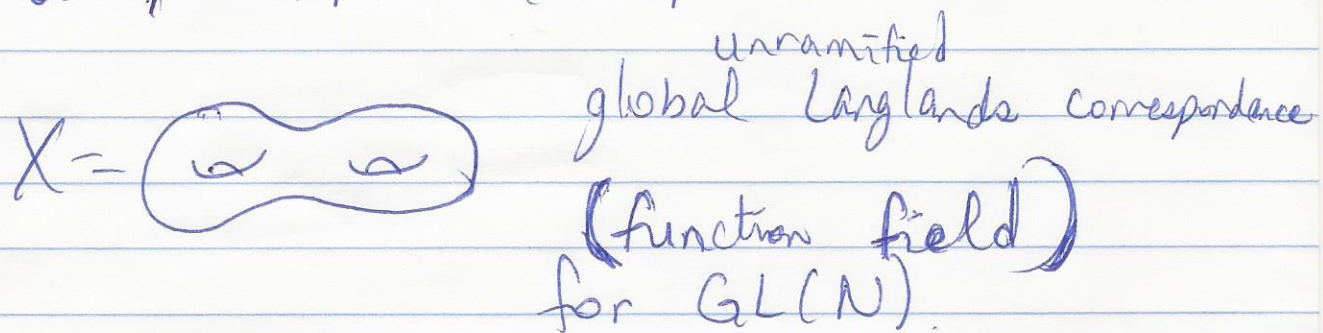 unramified
global Langlands correspondence
X =
(function field)
for GL(N).